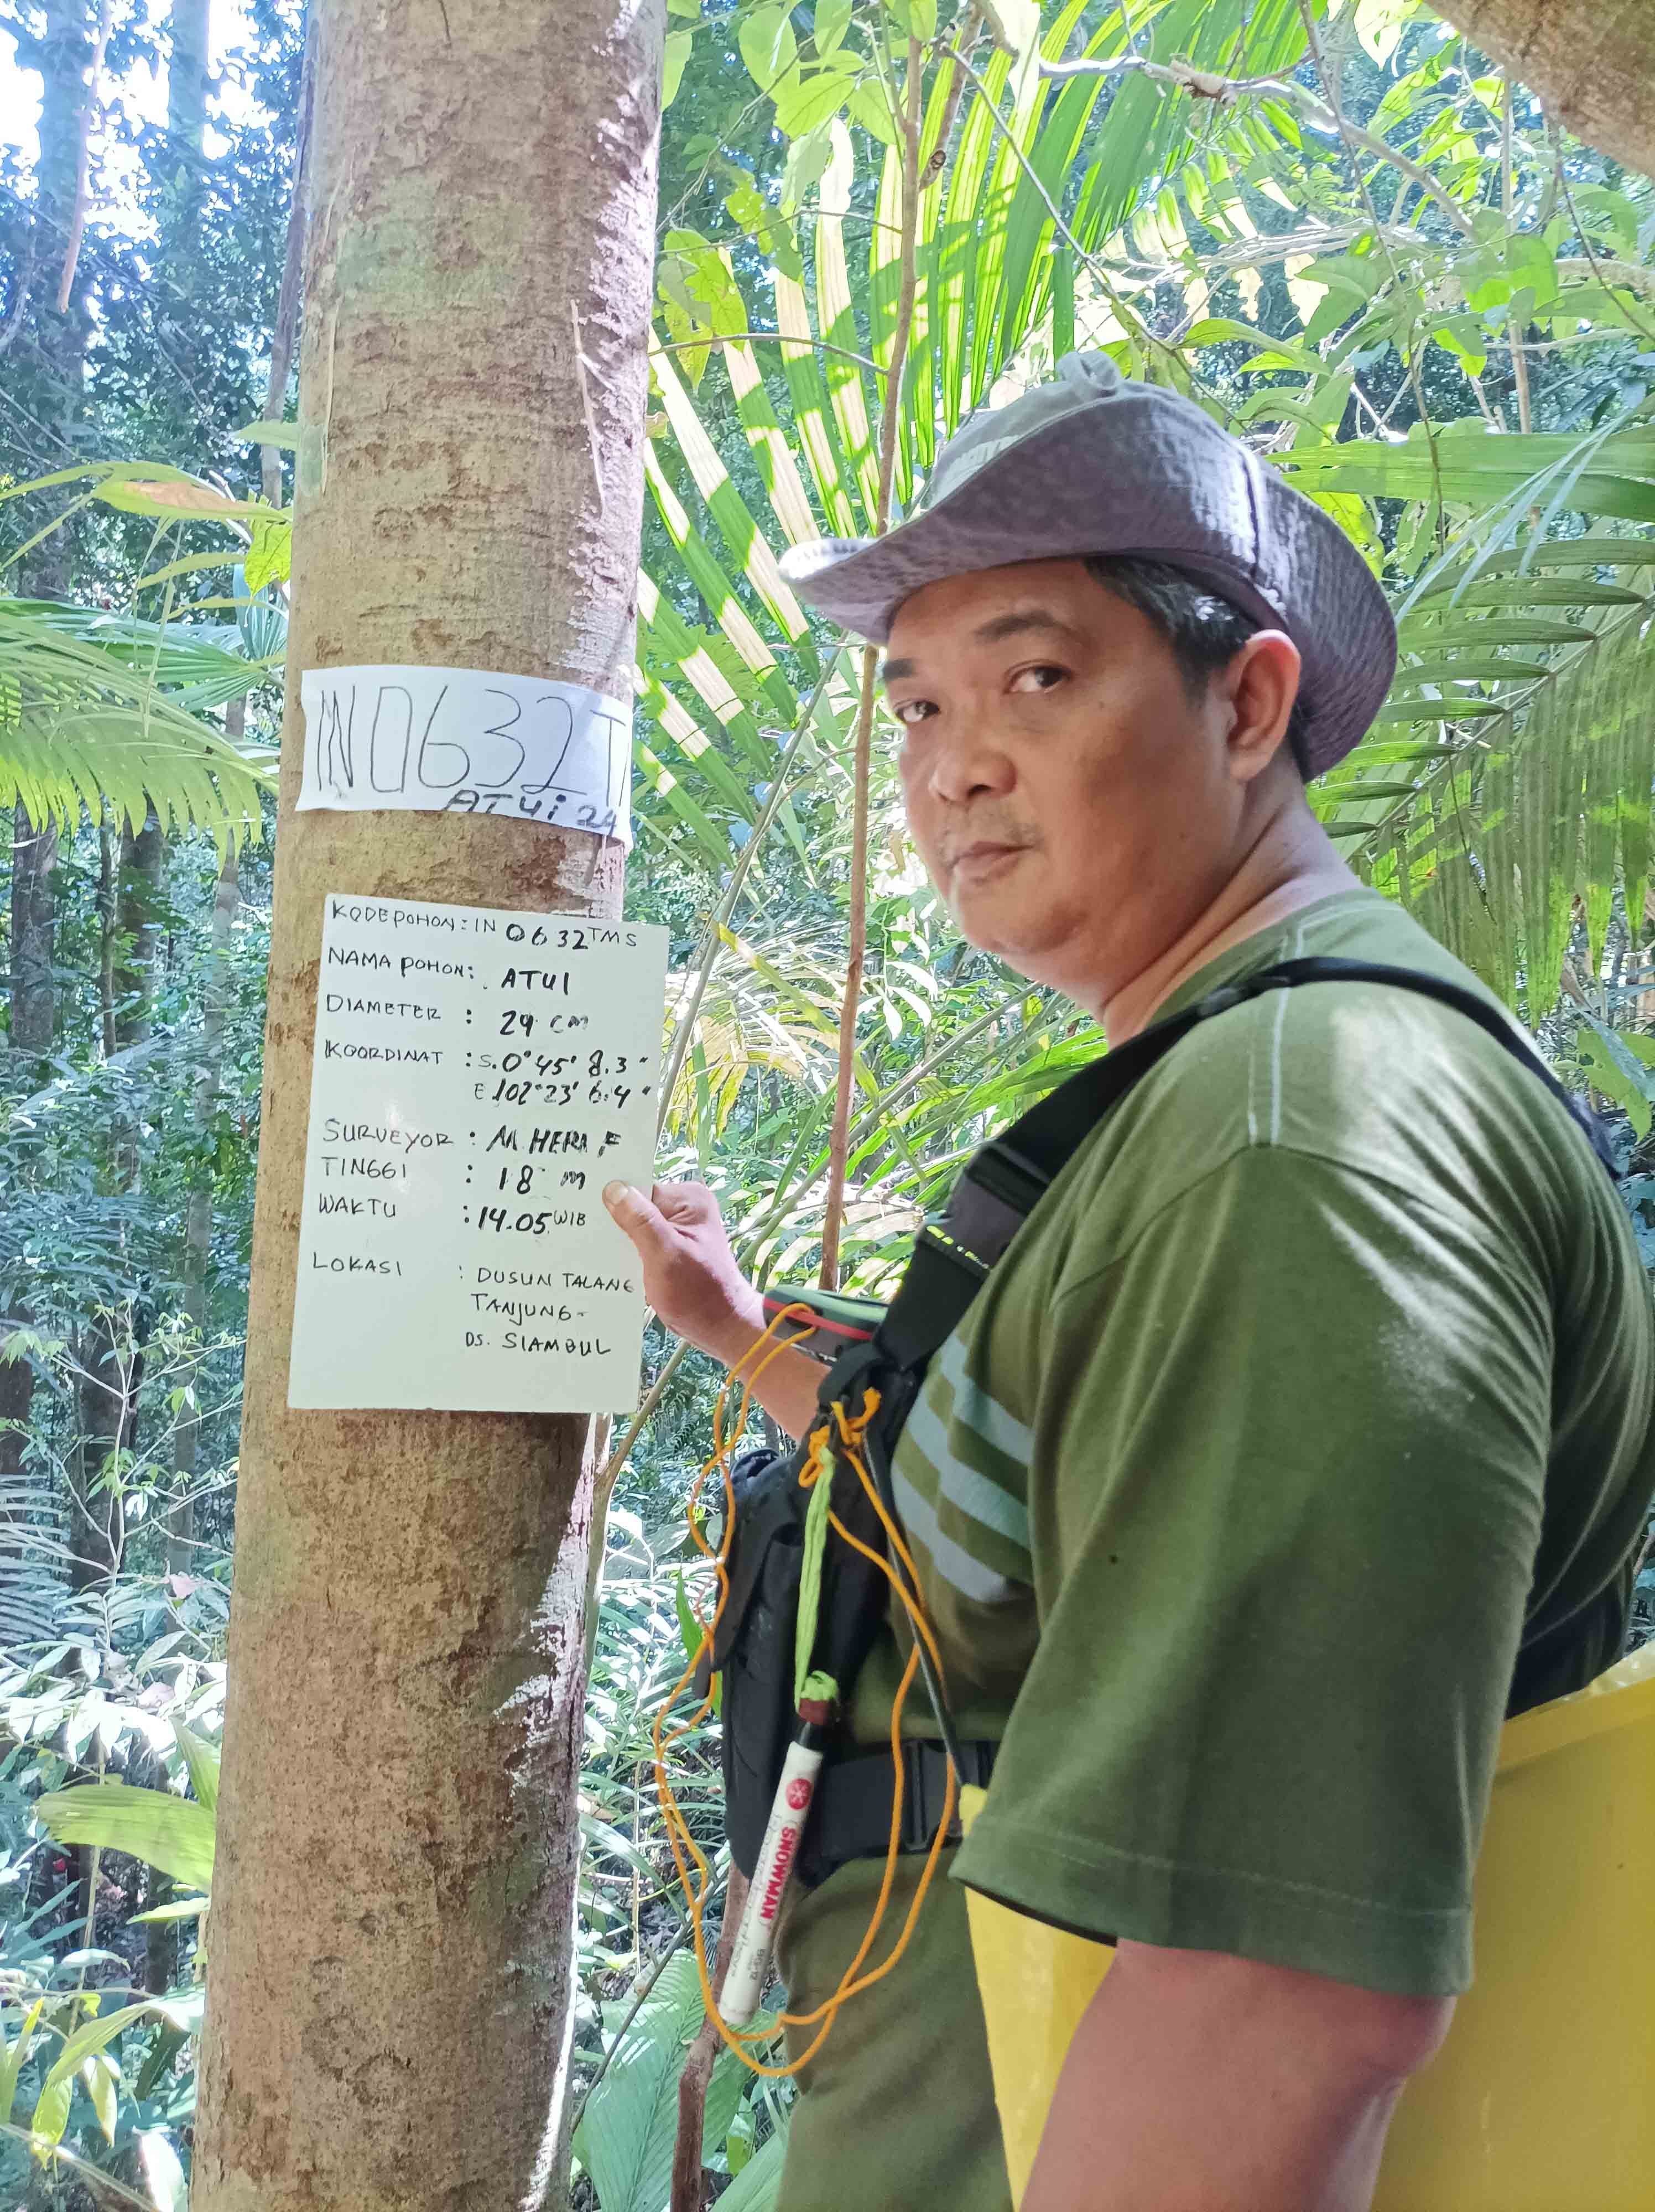 IN0632T
ATUi 24
KODEPOHON: IN 0632TMS
NAMA POHON: ATUI
DIAMETER : 29 CM
KOORDINAT : S.0°45' 8.3"
E 102°23' 6.4"
SURVEYOR : M.HERI F
TINGGI : 18 m
WAKTU : 14.05 WIB
LOKASI : DUSUN TALANG
TANJUNG-
DS. SIAMBUL
SNOWMAN